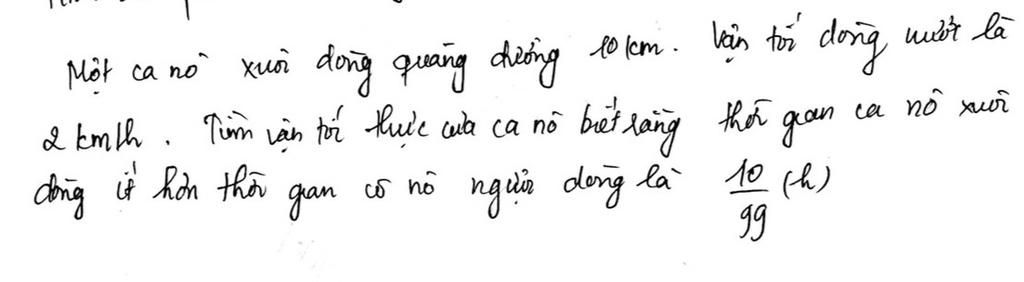 Một ca nô xuôi dòng quãng đường 10 km. Vận tốc dòng nước là
2 km/h. Tìm vận tốc thực của ca nô biết rằng thời gian ca nô xuôi
dòng ít hơn thời gian ca nô ngược dòng là 10/99 (h)